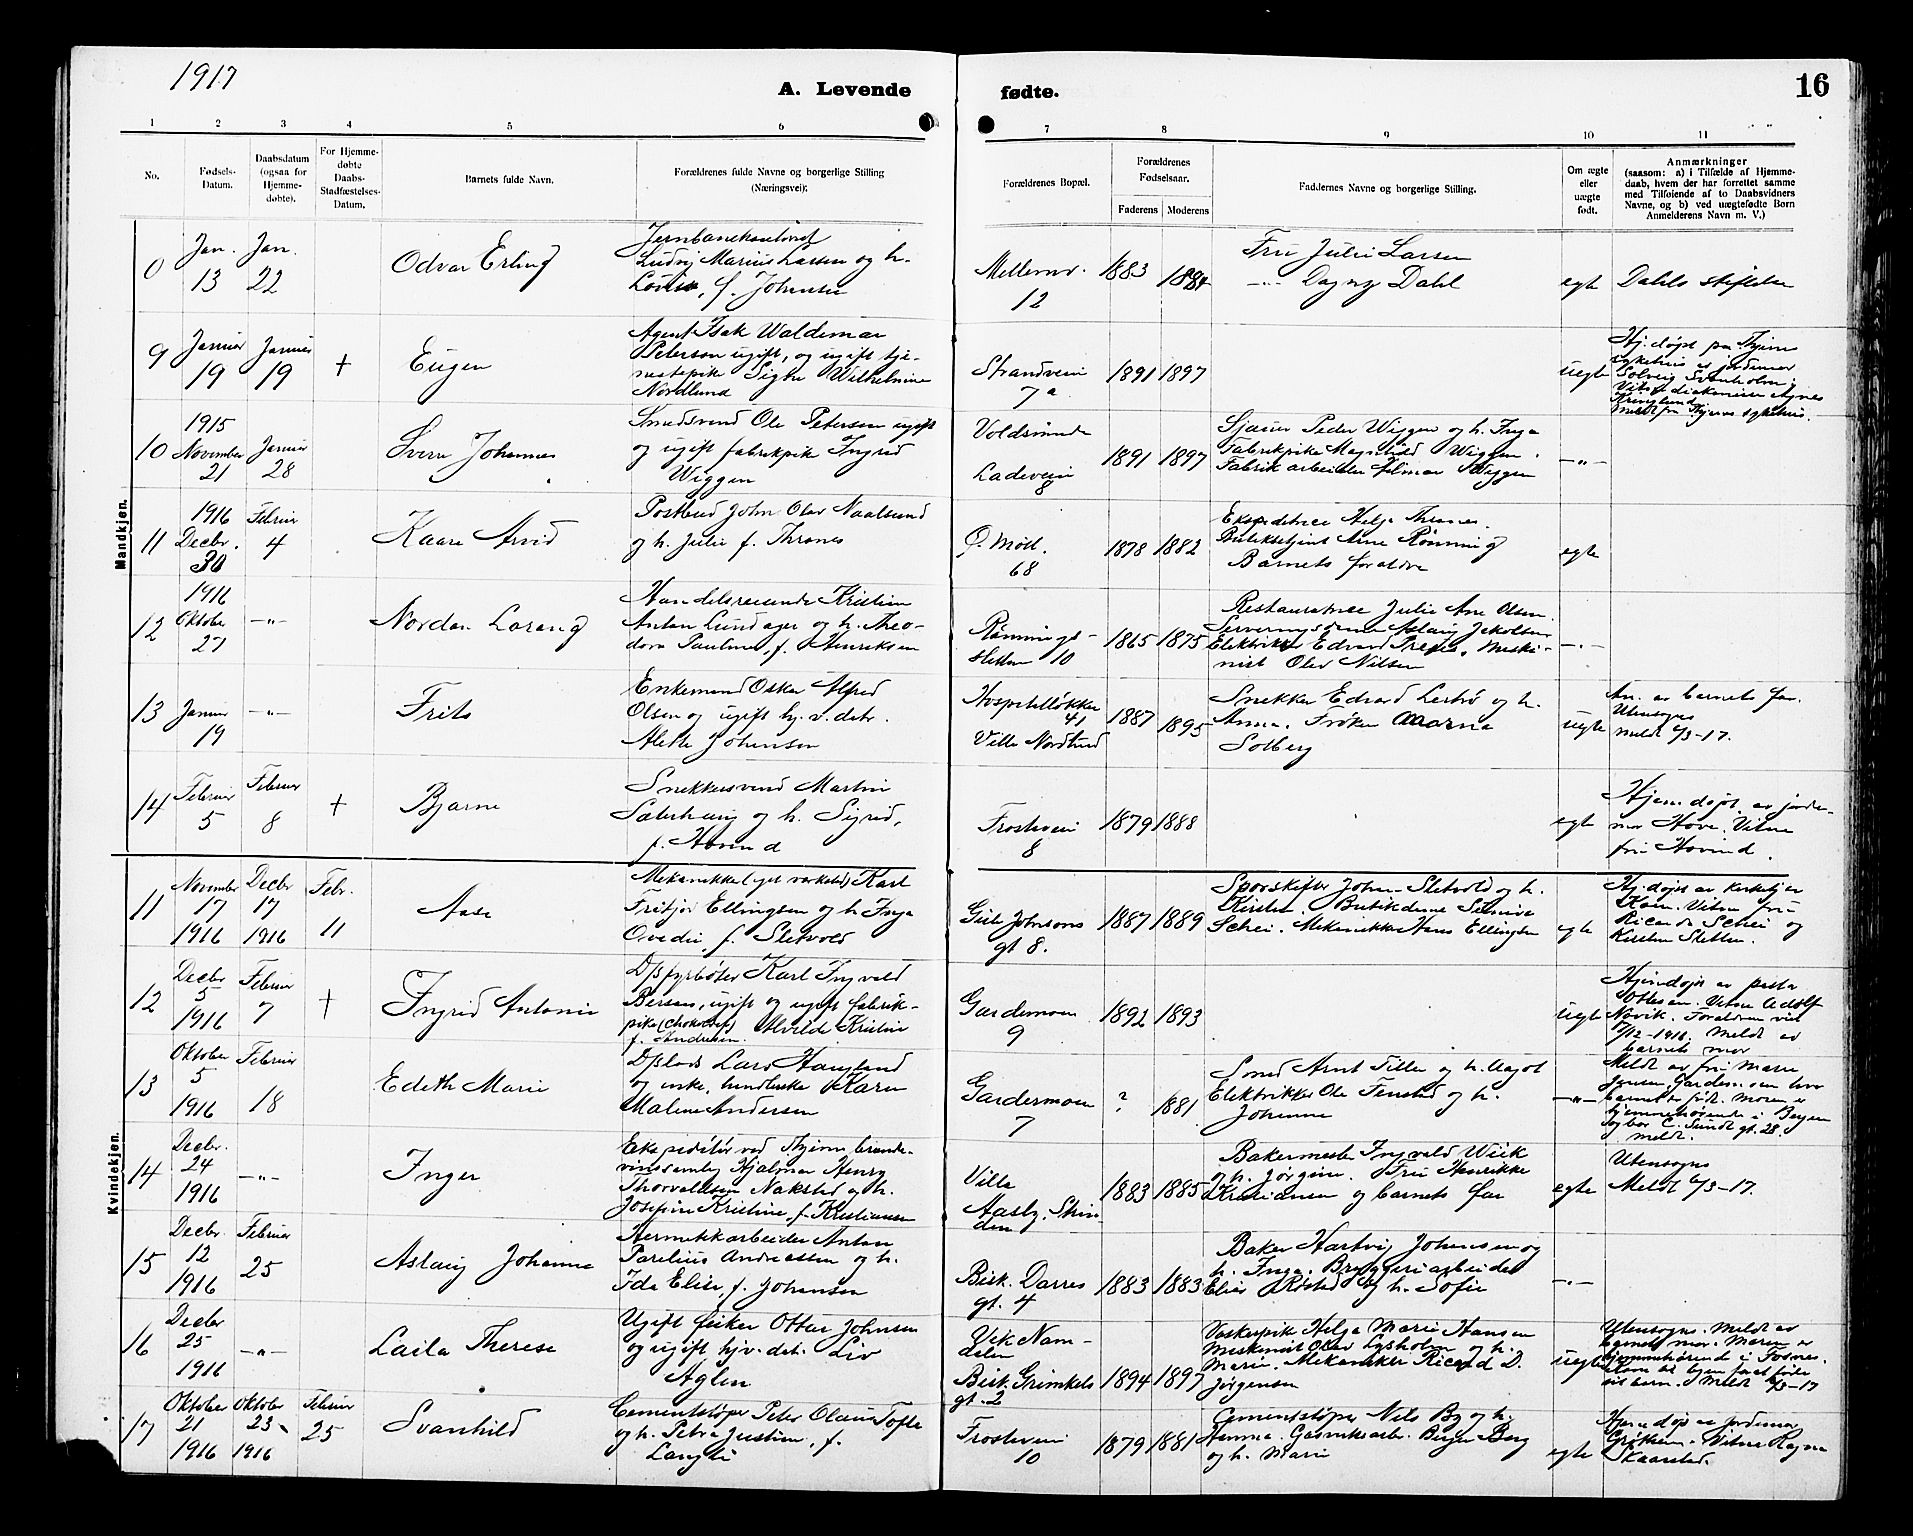 1917
A. Levende fødte.
16
1 2 3 4 5 6 7 8 9 10 11
No.
Fødsels-
Datum.
Daabsdatum
(ogsaa for
Hjemme-
døbte).
For Hjemme-
døbte
Daabs-
Stadfæstelses-
Datum.
Barnets fulde Navn.
Forældrenes fulde Navne og borgerlige Stilling
(Næringsvei);
Forældrenes Bopæl.
Forældrenes
Fødselsaar.
Faderens Moderens
Faddernes Navne og borgerlige Stilling.
Om ægte
eller
uægte
født.
Anmærkninger
(saasom: a) i Tilfælde af Hjemme-
daab, hvem der har forrettet samme
med Tilføiende af to Daabsvidners
Navne, og b) ved uægtefødte Børn
Anmelderens Navn m. V.)
Mandkjøn.
0
Jan. 13
Jan. 22
Odvar Erling
Ludvig Marius Larsen og h.
f. Johnsen
Mellemv.
12
1883
1884
Fru Julie Larsen
-"- Dagny Dahl
egte
Dahls stiftelse
9
Januar 19
Januar 19
+
Eugen
Agent Isak Waldemar
Peterson ugift, og ugift tje-
nestepike Signe Wilhelmine
Nordlund
Strandvein
7a
1891 1897
uegte
Solveig Svenholm,
10
1915
November
21
Januar
28
Sverre Johannes
Smedsvend Ole Petersen ugift
og ugift fabrikpike Ingrid
Wiggen
Voldsminde
Ladeveien
8
1891 1897
Sjauer Peder Wiggen og h. Inga
Fabrikpike Wiggen.
Fabrikarbeider Hilmar Wiggen
-"-
11
1916
Decbr.
30
Februar
4
Kaare Arvid
Postbud John Olav Naalsund
og h. Julie f. Thrones
Ø. Møll.
68
1878 1882
Ekspeditrice Helga Thrones.
Arne Rønning
Barnets foraldre
egte
12
1916
Oktober
27
-"-
Nordan Lorang
Handelsreisende Kristian
Anton Lundager og h. Theo-
dora Pauline, f. Henriksen
Rønnings-
sletten 10
1865 1875
Restauratrice Julie Ane Olsen.
Serveringsdame Aslaug Jakobsen
Elektriker Edvard Maski-
nist Olav Nilsen
-"-
13
Januar
19
-"-
Frits
Enkemand Oskar Alfred
Olsen og ugift hj. v. datr.
Alette Johanson
Hospitalløkker
41
Villa Nordlund
1887 1895
Snekker Edvard og h.
Anna. Frøken
Solberg
uegte
An. av barnets far.
Utensogns
meldt 6/3-17.
14
Februar
5
Februar
8
+
Bjarne
Snekkersvend Martin
Sæterhaug og h. Sigrid,
f. Hovind
Frostavein
8
1879 1888
egte
Hjemdøpt av jorde-
mor Hove. Vitne
fru Hovind.
Kvindekjøn.
11
November
17
1916
Decbr
17
1916
Febr.
11
Aase
Karl
Fritjof Ellingsen og h. Inga
Ovedie, f. Sletvold
Gisle Johnsons
gt 8.
1887 1889
Sporskifter John Sletvold og h.
Kirsten.
Schei. Mekaniker Hans Ellingsen
egte
Hj. døpt av
Vitner fru
Ricarda Schei og
Kirsten Sletten.
12
Decbr
5
1916
Februar
7
+
Ingrid Antonie
D/sfyrbøter Karl Ingvald
Bersaas, ugift og ugift fabrik-
pike (chokolade) Alvilde Kristine
f. Andresen.
Gardemoen
9
1892 1893
uegte
Hjemdøpt av pastor
Ottesen. Vitne Adolf
Novik. Foraldrene viet
1916. Meldt av
barnets mor
13
Oktober
5
1916
Februar
18
Edith Marie
Lars Haugland
og enke, Karen
Malene Andersen
Gardermoen
7
?
1881
Smed Arnt Tiller og h. Aagot
Elektriker Ole og h.
Johanne
-"-
Meldt av fru Marie
Jensen, Gardem.
barnet er født. Moren er
hjemmehørende i Bergen
C. Sundt gt. 28.
meldt.
14
Decbr.
24
1916
-"-
Inger
Ekspeditør ved
Hjalmar Henry
Thorvaldsen Nakstad og h.
Josefine Kristine, f. Kristiansen
Villa
Aasly,
1883 1885
Bakermester Ingvald Wiik
og h. Jørgine. Fru Henrikke
Kristiansen og barnets far
egte
Utensogns
Meldt 6/3-17.
15
Decbr.
12
1916
Februar
25
Aslaug Johanne
Hermetikkarbeider Anton
Parelius Andreassen og h.
Ida Elise, f. Johansen
Bisk. Darres
gt. 4
1883 1883
Baker Hartvig Johansen og
h. Inga. Bryggeriarbeider
Elias og h. Sofie
-"-
16
Decbr
25
1916
-"-
Laila Therese
Ugift fisker Ottar Johnsen
og ugift hjv. dat. Liv
Aglen
Vik Nam-
dalen
Bisk. Grimkels
gt. 2
1894 1897
Vaskeripike Helga Marie Hansen
Maskinist Olav Lysholm og h.
Marie. Mekaniker Ricard D.
Jørgensen
uegte
Utensogns. Meldt av
barnets mor. Moren er
hjemmehørende i Fosnes.
sit barn. Meldt 6/3-17
17
Oktober
21
1916
Oktober
23
1916
Februar
25
Svanhild
Cementstøper Peter Olaus Tofte
og h. Petra Justine, f.
Langli
Frostavein
10
1879 1881
Cementstøper Nils By og h.
Anna. Gasverksarb. Birger Berg
og h. Marie
egte
Hjemdøpt av jordemor
Vitne Ragna
Kaarstad.